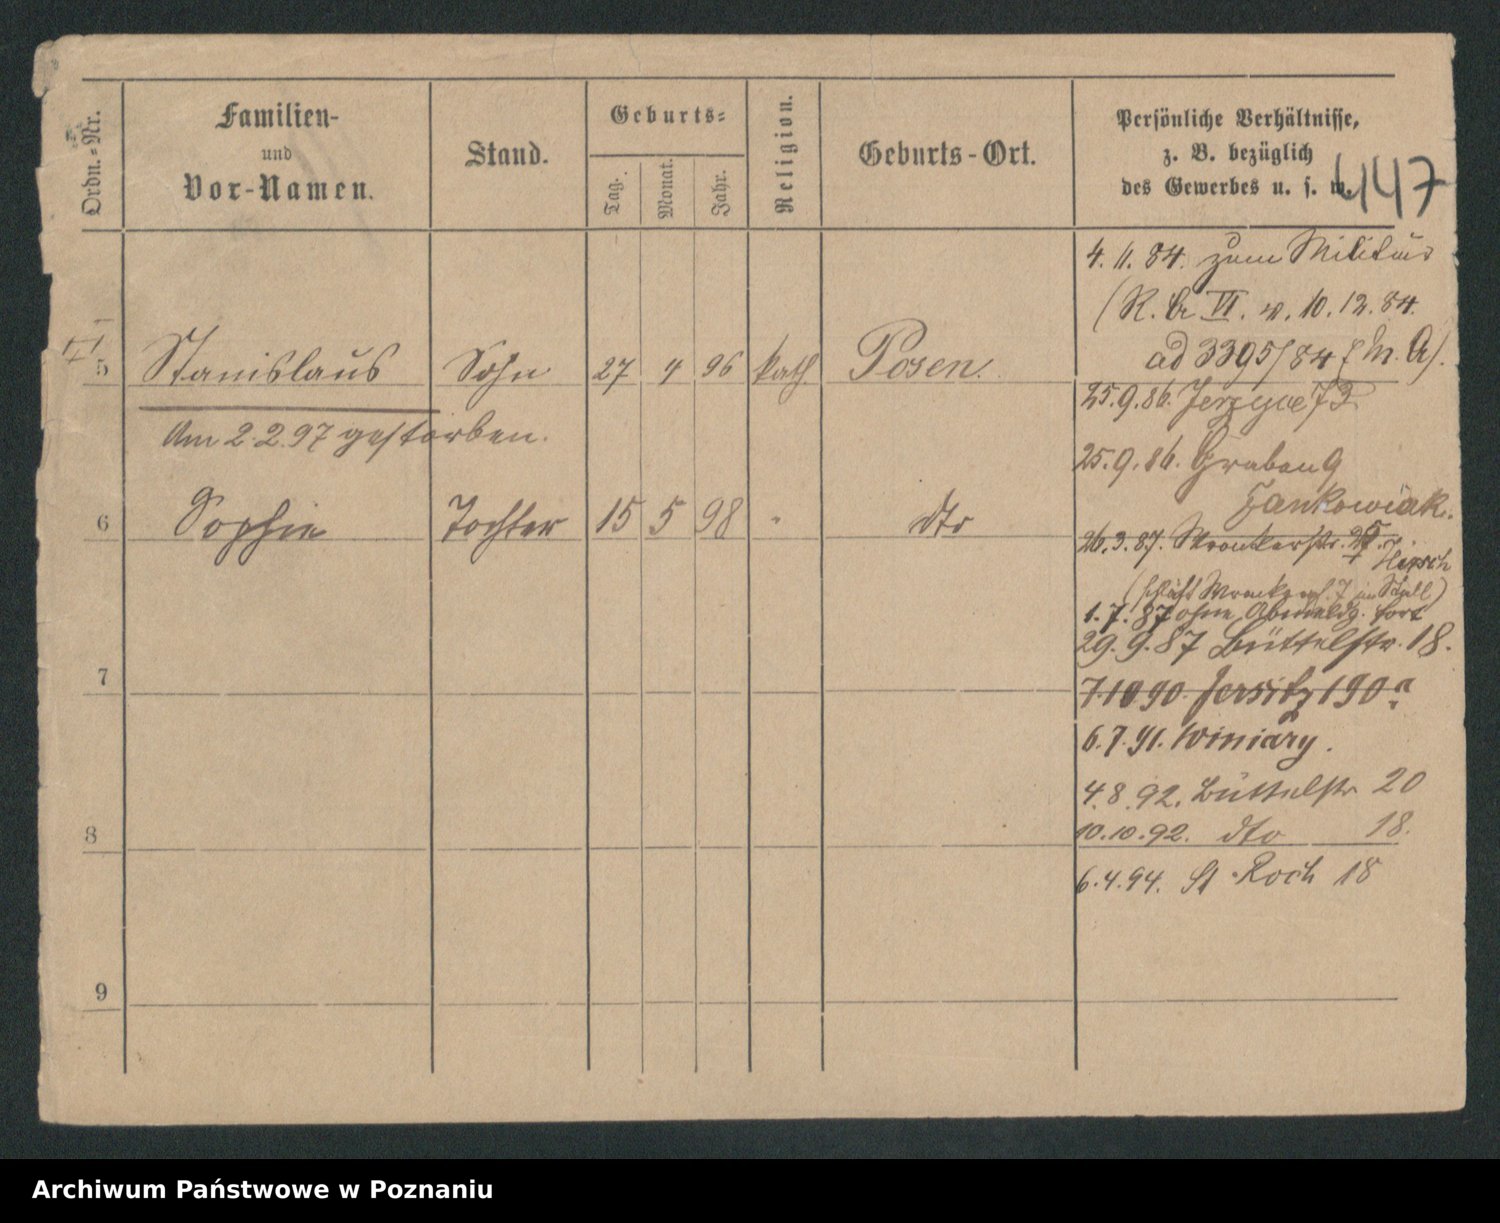 Ordn.-Nr.
Familien-
und
Vor-Namen.
Stand.
Geburts-
Tag.
Monat.
Jahr.
Religion.
Geburts-Ort.
Persönliche Verhältnisse,
z. B. bezüglich
des Gewerbes u. s. w.
447
4. 11. 84. zum Militär
(R. Br VI. v. 10. 12. 84.
ad 3395/84 M. A).
5 Stanislaus Sohn 27 4 96 kath. Posen.
25.9.86. Jerzyce 73
Am 2.2.97 gestorben.
25.9.86. Graben 9
Jankowiak.
6 Sophie Tochter 15 5 98 " dto
26.3.87. Wronkerstr. Hirsch
(schläft 7 im Stall)
1.7.87 ohne Abmeldg. fort
29.9.87 Büttelstr. 18.
7
7.10 90. Jersitz 190a
6.7.91. Winiary.
4.8.92. Büttelstr 20
8
10.10.92. dto 18.
6.4.94. St Roch 18
9
Archiwum Państwowe w Poznaniu